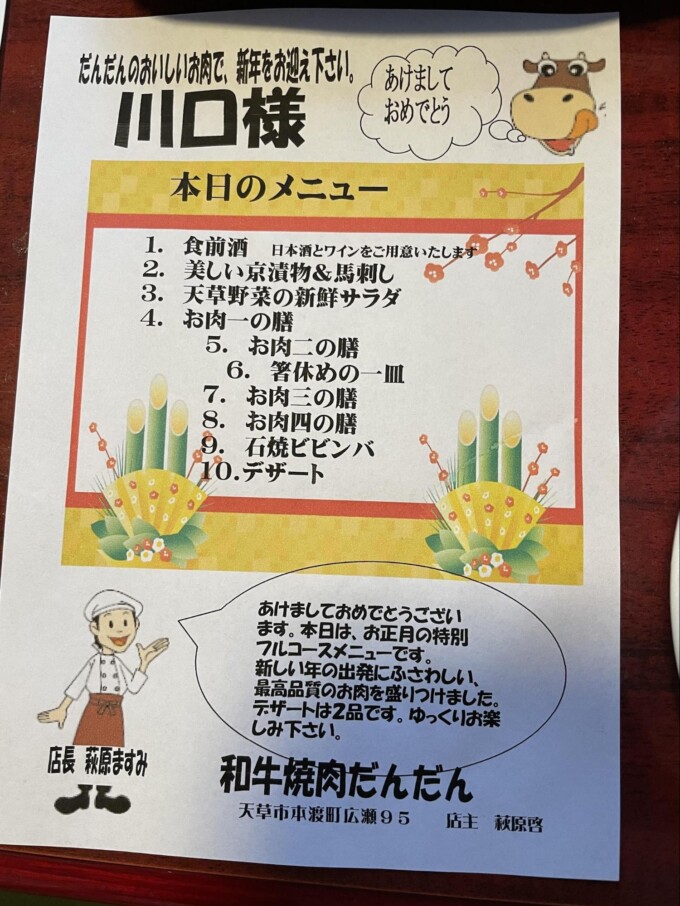 だんだんのおいしいお肉で、新年をお迎え下さい。
川口様
あけまして
おめでとう
本日のメニュー
1. 食前酒 日本酒とワインをご用意いたします
2. 美しい京漬物&馬刺し
3. 天草野菜の新鮮サラダ
4. お肉一の膳
5. お肉二の膳
6. 箸休めの一皿
7. お肉三の膳
8. お肉四の膳
9. 石焼ビビンバ
10.デザート
あけましておめでとうござい
ます。本日は、お正月の特別
フルコースメニューです。
新しい年の出発にふさわしい、
最高品質のお肉を盛りつけました。
デザートは2品です。ゆっくりお楽
しみ下さい。
店長 萩原ますみ
和牛焼肉だんだん
天草市本渡町広瀬95 店主 萩原啓